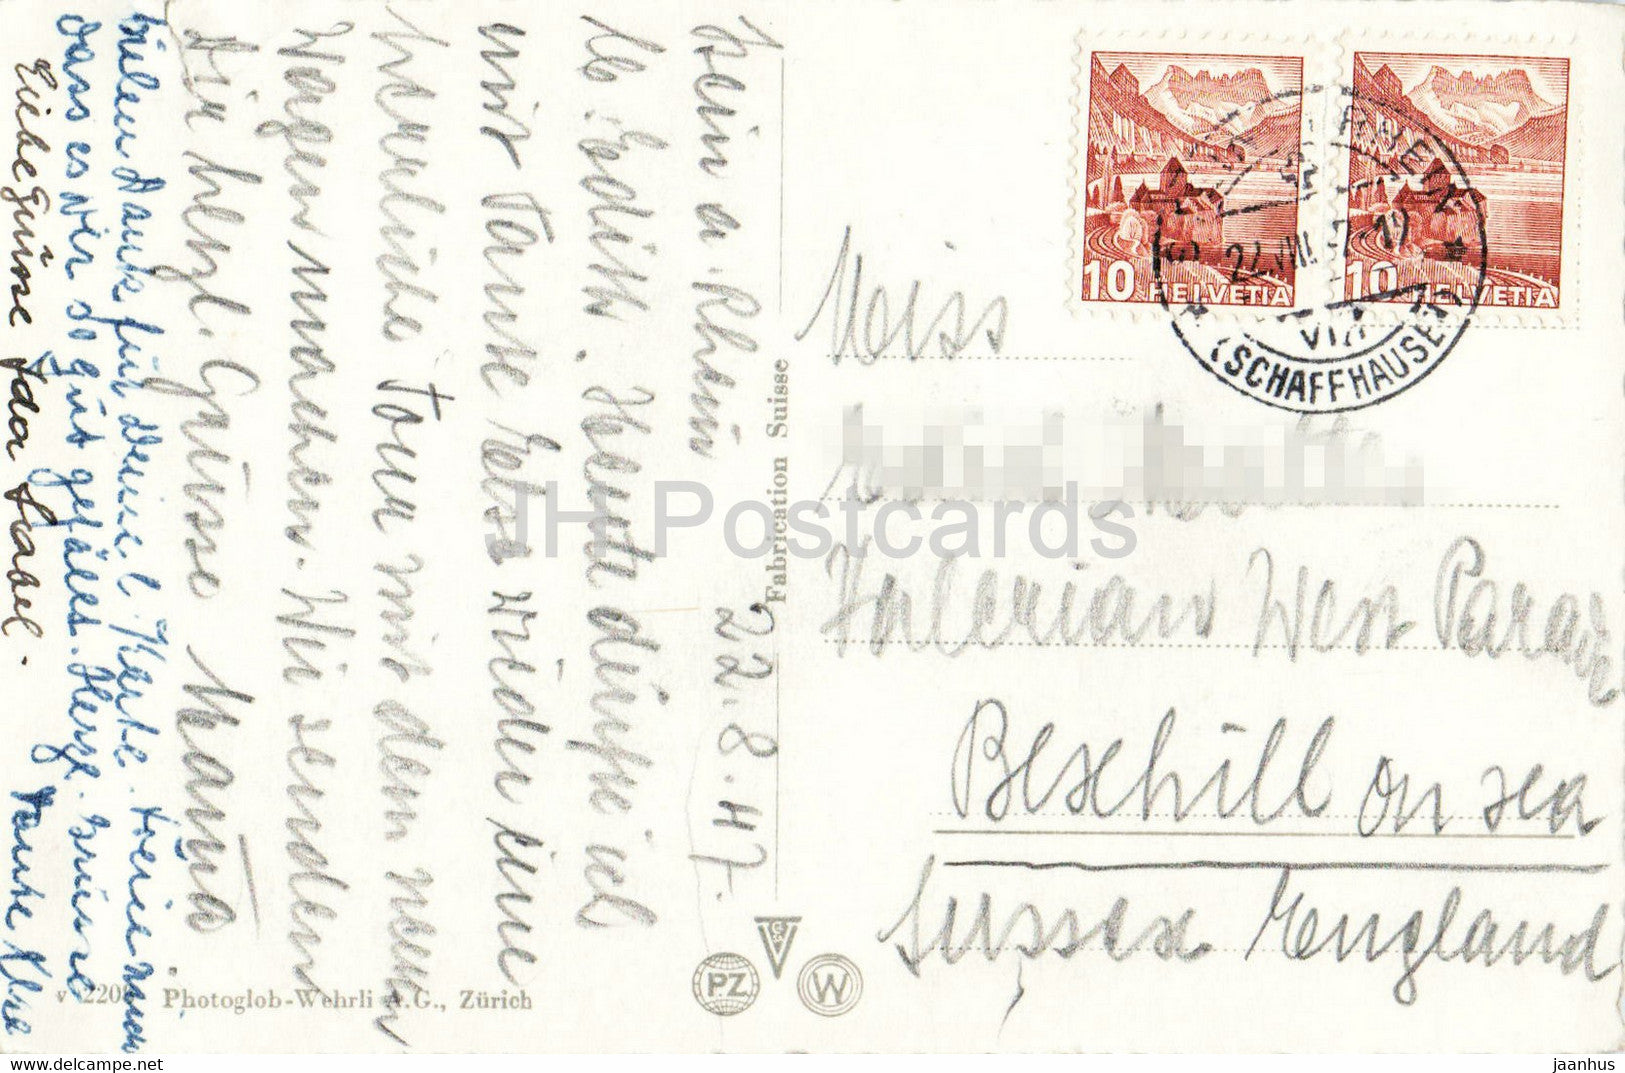 Stein a. Rhein 22.8.47.
Lb. Edith. Heute dürfte ich
mit Tante Elsa wieder eine
herrliche Tour mit dem neuen
Wagen machen. Wir senden
Dir herzl. Grüsse Mama
Vielen Dank für Deine l. Karte. Freue mich
dass es Dir so gut gefällt. Herzl. Grüsse
Tante Elsa
Liebe Grüsse Ida Sabel.
Fabrication Suisse
v 220
Photoglob-Wehrli A.G., Zürich
PZ
W
10 HELVETIA
10 HELVETIA
22.VIII.47-19
VIA
(SCHAFFHAUSEN)
Miss
West Parade
Bexhill on sea
Sussex England
JH Postcards
delcampe.net
jaanhus